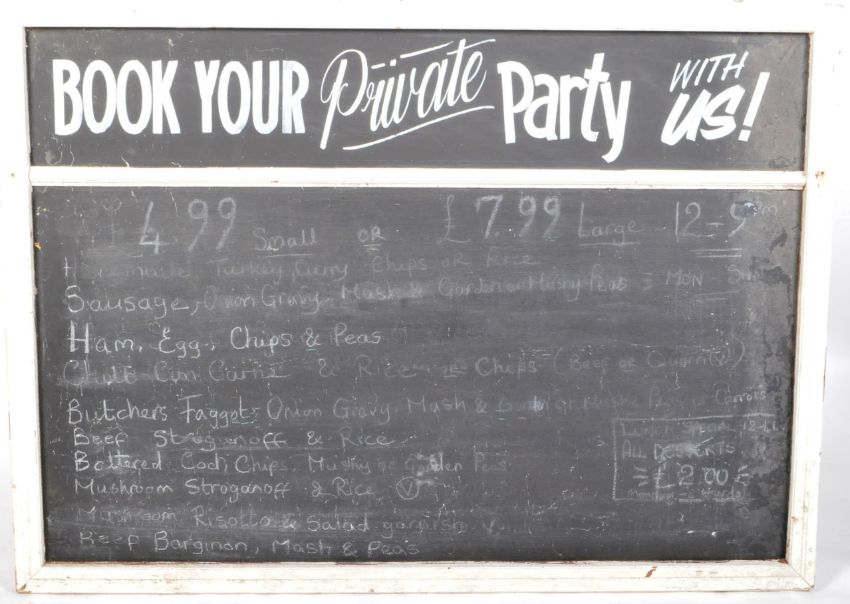 BOOK YOUR Private Party WITH US!
4.99 Small OR £7.99 Large 12-9pm
Homemade Turkey Curry Chips OR Rice
Sausage, Onion Gravy, Mash & Garden or Mushy Peas MON
Ham, Egg, Chips & Peas
Con Carne & Rice or Chips (Beef or Quorn (V))
Butchers Faggots Onion Gravy Mash & or Mushy Peas or Carrots
Beef Stroganoff & Rice
Battered Cod, Chips, Mushy or Garden Peas
Mushroom Stroganoff & Rice (V)
Mushroom Risotto & Salad garnish V
Beef Borginon, Mash & Peas
ALL DESSERTS
£2.00